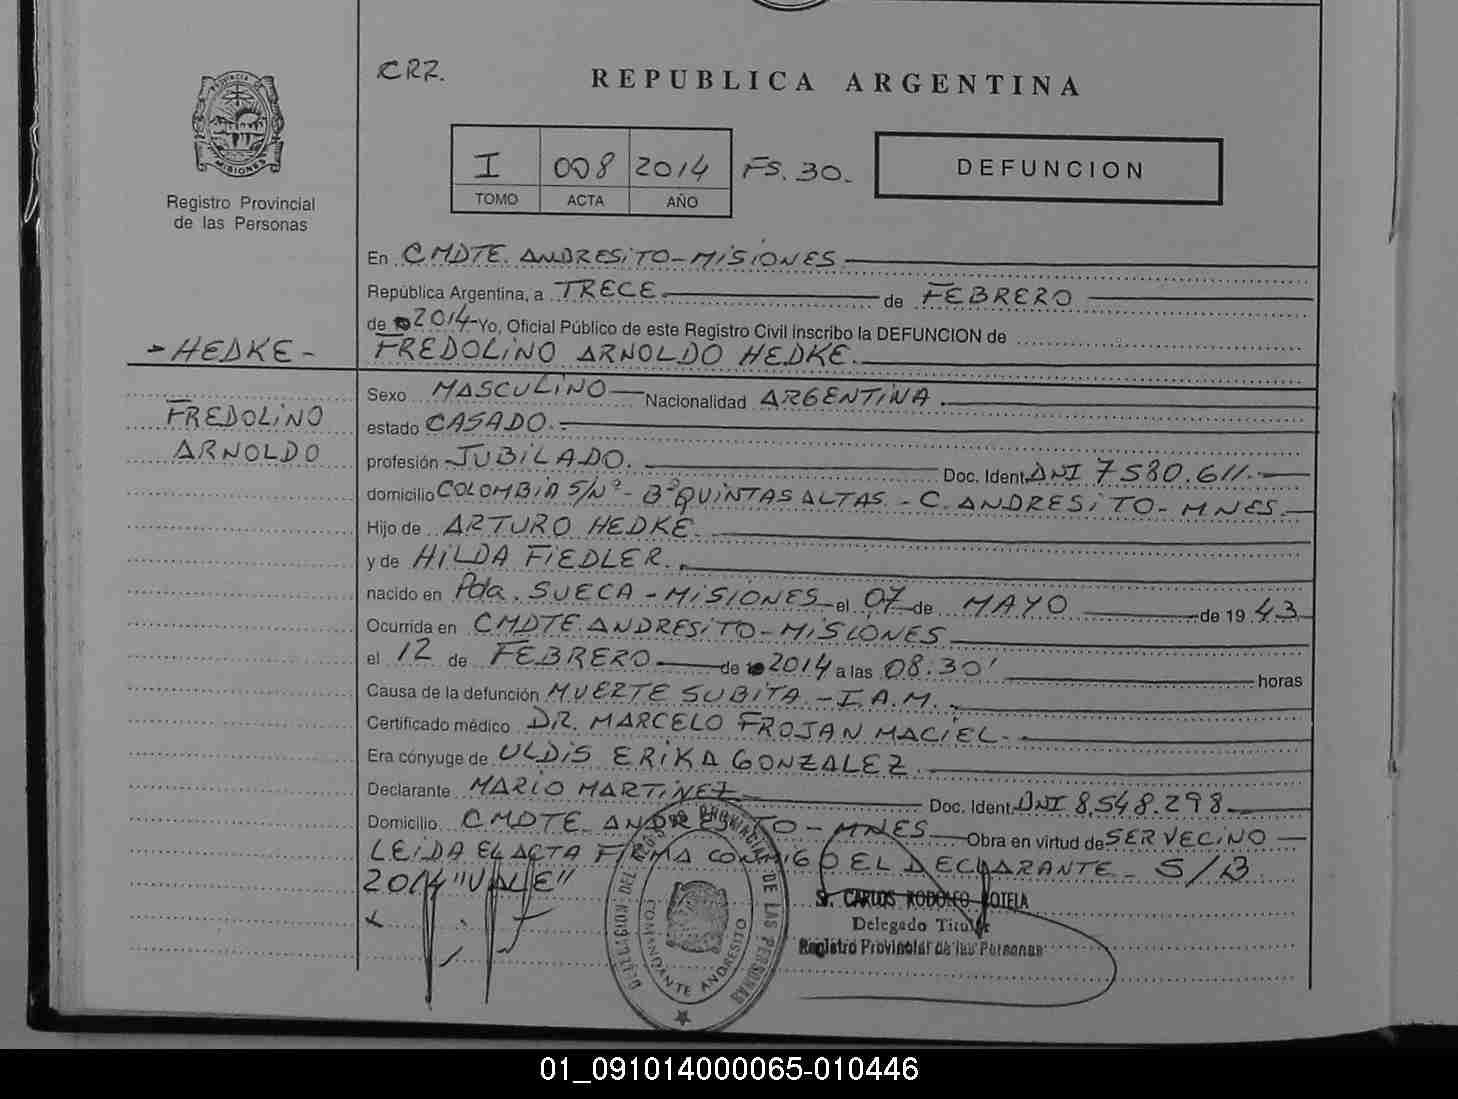 CRR.
REPUBLICA ARGENTINA
PROVINCIA DE
MISIONES
Registro Provincial
de las Personas
I 008 2014 FS. 30.
TOMO ACTA AÑO
DEFUNCION
En CMDTE. ANDRESITO - MISIONES
República Argentina, a TRECE de FEBRERO
de 2014 Yo, Oficial Público de este Registro Civil inscribo la DEFUNCION de
- HEDKE -
FREDOLINO ARNOLDO HEDKE.
FREDOLINO
ARNOLDO
Sexo MASCULINO Nacionalidad ARGENTINA.
estado CASADO.
profesión JUBILADO. Doc. Ident. DNI 7580.611.
domicilio COLOMBIA S/Nº - Bº QUINTAS ALTAS. - C. ANDRESITO - MNES.
Hijo de ARTURO HEDKE.
y de HILDA FIEDLER.
nacido en Pda. SUECA - MISIONES el 07 de MAYO de 19 43
Ocurrida en CMDTE ANDRESITO - MISIONES
el 12 de FEBRERO de 2014 a las 08.30' horas
Causa de la defunción MUERTE SUBITA - I.A.M.
Certificado médico DR. MARCELO FROJAN MACIEL.
Era cónyuge de ULDIS ERIKA GONZALEZ.
Declarante MARIO MARTINEZ Doc. Ident. DNI 8.548.298
Domicilio CMDTE. ANDRESITO - MNES Obra en virtud de SER VECINO
LEIDA EL ACTA FIRMA CONMIGO EL DECLARANTE. S/B
2014 "VALE"
Sr. CARLOS RODOLFO ROTELA
Delegado Titular
Registro Provincial de las Personas
DELEGACION DEL REGISTRO PROVINCIAL DE LAS PERSONAS
COMANDANTE ANDRESITO
01_091014000065-010446